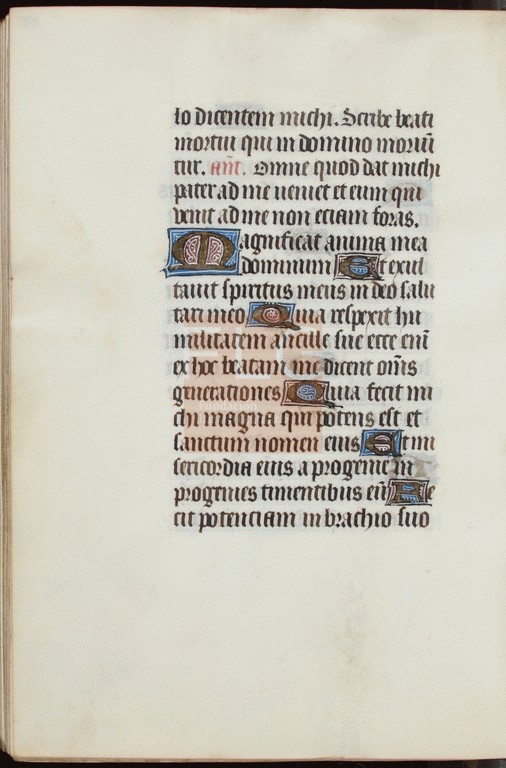 lo dicentem michi. Scribe beati
mortui qui in domino moriū
tur. añt. Omne quod dat michi
pater ad me veniet et eum qui
venit ad me non eciam foras.
Magnificat anima mea
dominum Et exul
tavit spiritus meus in deo salu
tari meo Quia respexit hu
militatem ancille sue ecce enī
ex hoc beatam me dicent om̄s
generationes Quia fecit mi
chi magna qui potens est et
sanctum nomen eius Et mi
sericordia eius a progenie in
progenies timentibus eū Fe
cit potenciam in brachio suo